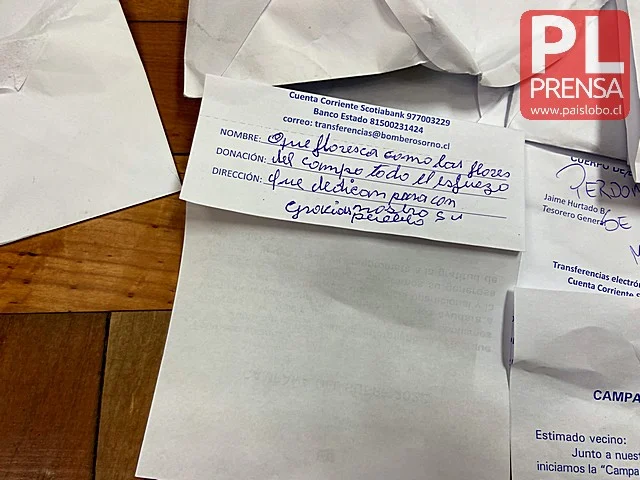 PL
PRENSA
www.paislobo.cl
Cuenta Corriente Scotiabank 977003229
Banco Estado 81500231424
correo: transferencias@bomberosorno.cl
NOMBRE: Que floresca como las flores
DONACIÓN: del campo todo el esfuezo
DIRECCIÓN: que dedican para con
Gracias nostro su
pueblo
CUERPO DE
PERDON
Jaime Hurtado B
Tesorero General
DE
M
Transferencias electrón
Cuenta Corriente S
CAMPA
Estimado vecino:
Junto a nuest
iniciamos la "Campa